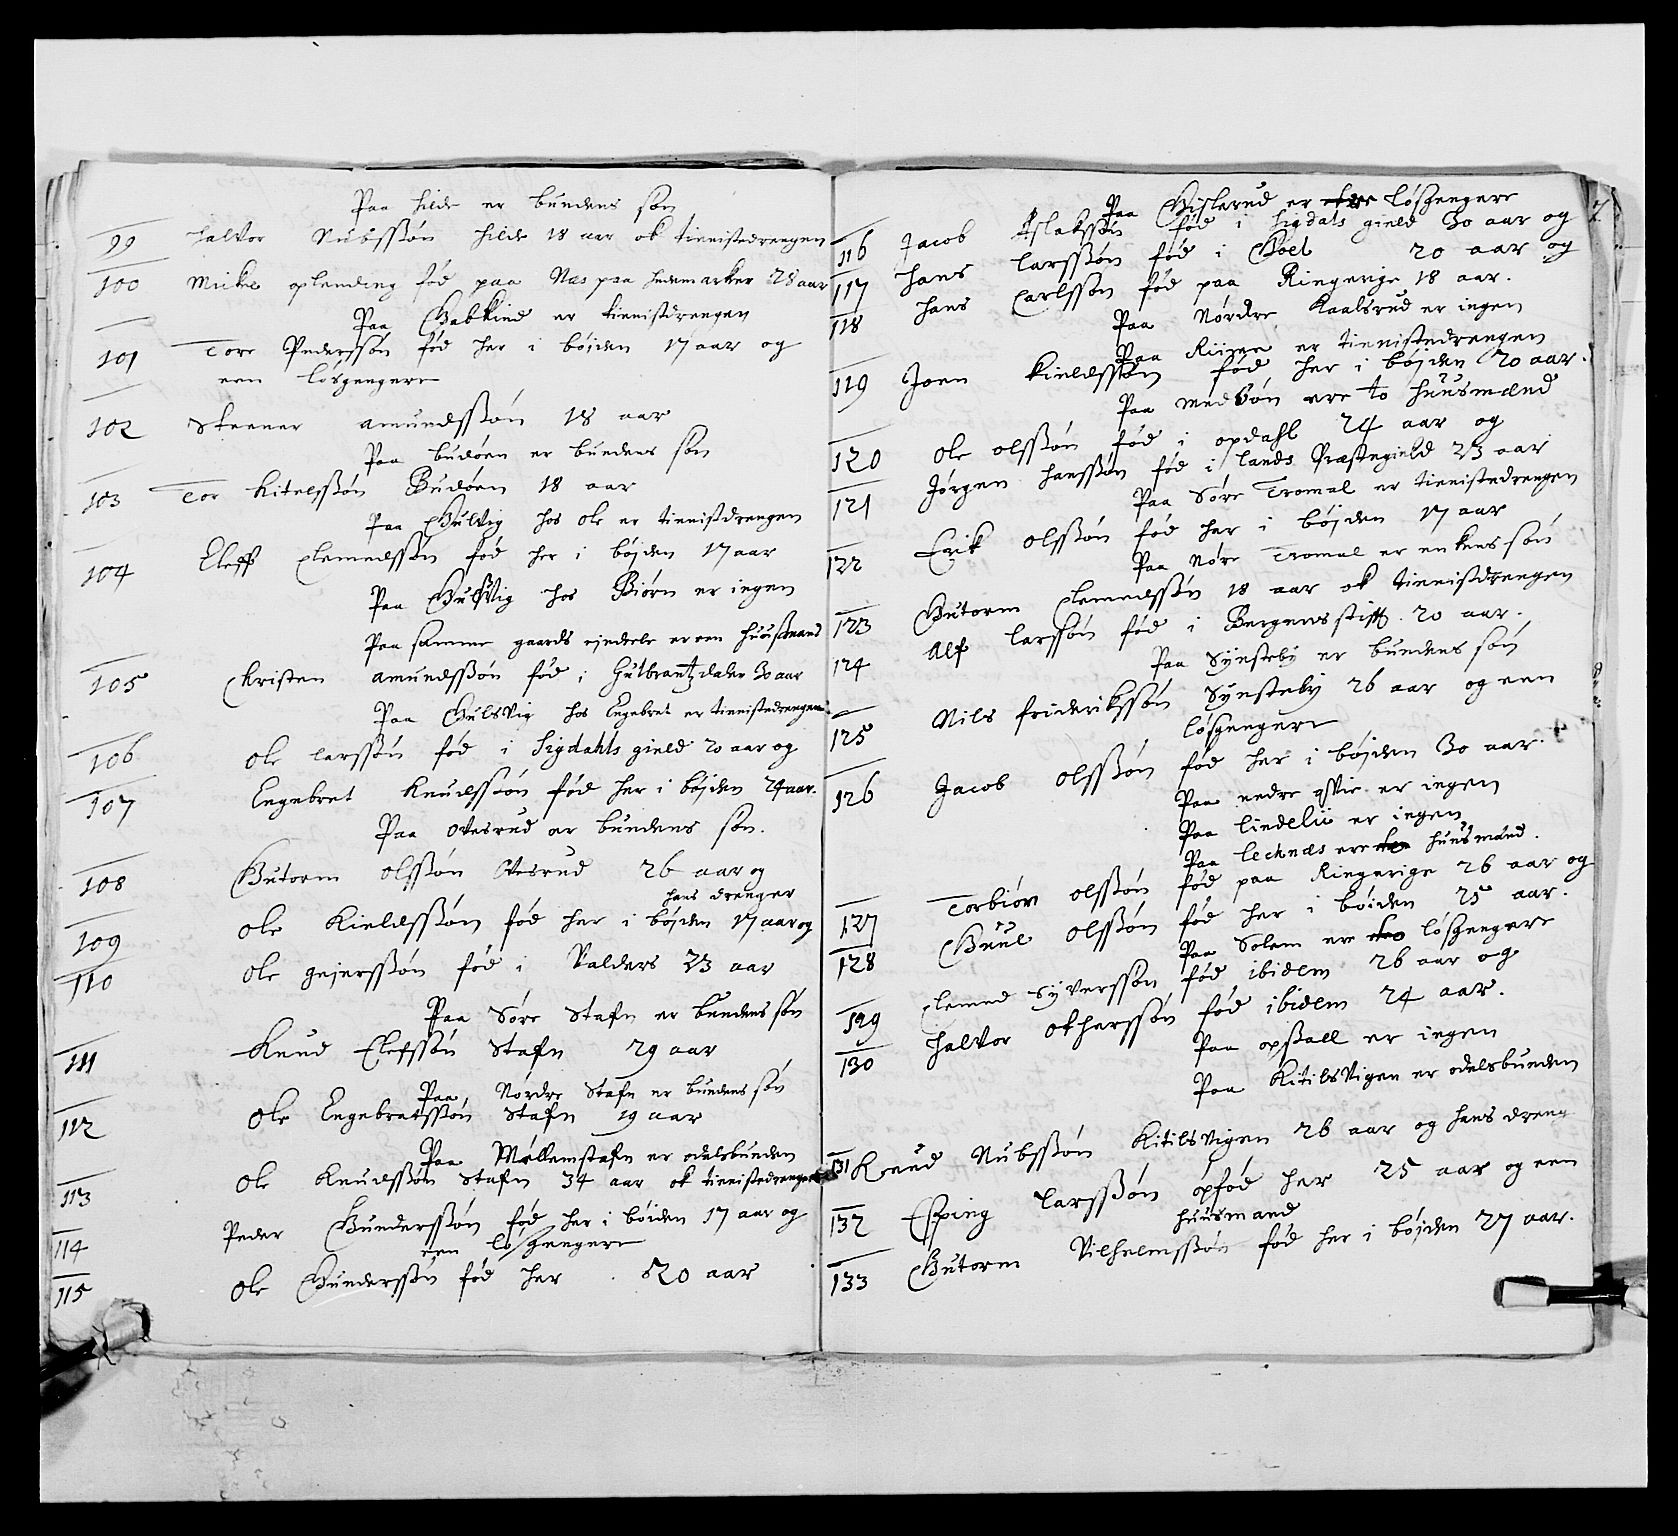 Paa hilde er bundens søn
99 halvor Nubssøn hilde 18 aar ok tienistedrengen
100 Mickel oplending fød paa Nes paa hedemarken 28 aar
Paa Gabkind er tienistdrengen
101 Tore Pederssøn fød her i bøiden 17 aar og
een løsgengere
102 Steener amundssøn 18 aar
Paa budøen er bundens søn
103 Tor Kitelssøn Budøen 18 aar
Paa Gulvig hos ole er tienistdrengen
104 Eleff Clemedssøn fød her i bøjden 17 aar
Paa Gulsvig hos Biørn er ingen
Paa samme gaards ejedeele er een huusmans
105 Christen amundssøn fød i Gulbrantzdalen 30 aar
Paa Gulsvig hos Engebret er tienistedrengen
106 Ole larssøn fød i Sigdahls gield 20 aar og
107 Engebret Knudssøn fød her i bøjden 24 aar.
Paa Ovesrud er bundens søn.
108 Gutorm Olssøn Ovesrud 26 aar og
hans drenger
109 Ole Kieldssøn fød her i bøjden 17 aar og
110 Ole gejerssøn fød i Valders 23 aar
Paa Søre Stafn er bundens søn
111 Knud Elefssøn Stafn 29 aar
Paa Nordre Stafn er bundens søn
112 Ole Engebretssøn Stafn 19 aar
Paa Mellemstafn er odelsbunden
113 Ole Knudssøn Stafn 34 aar ok tienistedrengen
114 Peder Gunderssøn fød her i bøiden 17 aar og
een løsgengere
115 Ole Gunderssøn fød her 20 aar
Paa Gislerud er løsgengere
116 Jacob Aslakssøn fød i Sigdals gield 30 aar og
117 hans larssøn fød i Goel 20 aar og
118 hans Carlssøn fød paa Ringerige 18 aar.
Paa Nørdre Kaalsrud er ingen
Paa Riisen er tienistedrengen
119 Joen Kieldssøn fød her i bøjden 20 aar.
Paa medbøn ere to huusmænd
120 Ole olssøn fød i opdahl 24 aar og
121 Jørgen hanssøn fød i lands Præstegield 23 aar
Paa Søre Tromal er tienistedrengen
122 Erik Olssøn fød her i bøjden 17 aar
Paa Nøre Tromal er enkens søn
123 Gutorm Clemedssøn 18 aar ok tienistdrengen
124 Alf larssøn fød i Bergens stift. 20 aar.
Paa Synsteby er bundens søn
125 Nils friderikssøn Synsteby 26 aar og een
løsgengere
126 Jacob Olssøn fød her i bøjden 30 aar.
Paa nedre er ingen
Paa lindelii er ingen
Paa lecknæs ere huusmænd.
127 Torbiørn Olssøn fød paa Ringerige 26 aar og
128 Guul Olssøn fød her i bøiden 25 aar.
Paa Solem ere løsgengere
129 Clemed Syverssøn fød ibidem 26 aar og
130 halvor Otherssøn fød ibidem 24 aar.
Paa opsall er ingen
Paa KitilsVigen er odelsbunden
131 Knud Nubssøn KitilsVigen 26 aar og hans dreng
132 Esping larssøn opfød her 25 aar og een
huusmand
133 Gutorm Vilhelmssøn fød her i bøjden 27 aar.